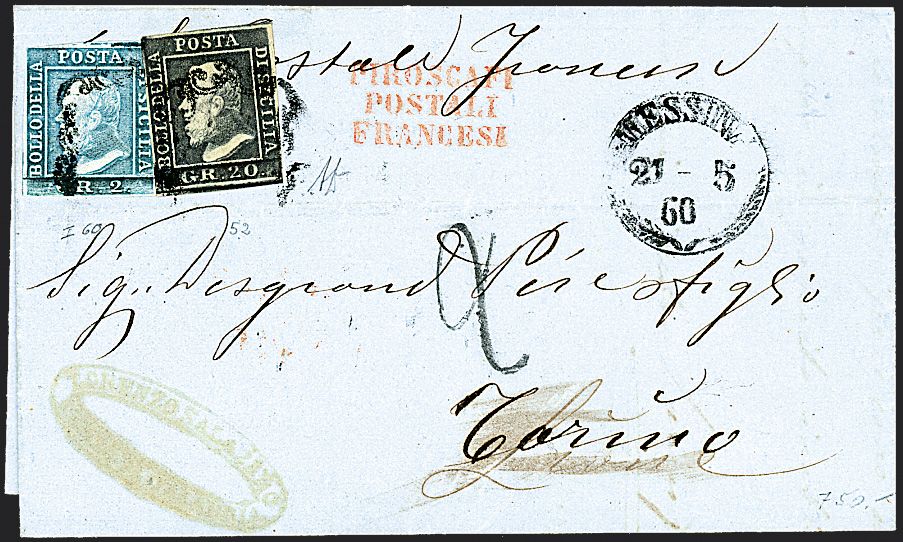 Postale Francese
BOLLO DELLA POSTA DI SICILIA
GR. 2
BOLLO DELLA POSTA DI SICILIA
GR. 20.
PIROSCAFI
POSTALI
FRANCESI
MESSINA
21 - 5
60
I 60
52
Sig. Desgrand Père & figlio
2
Torino
LORENZO
750.-